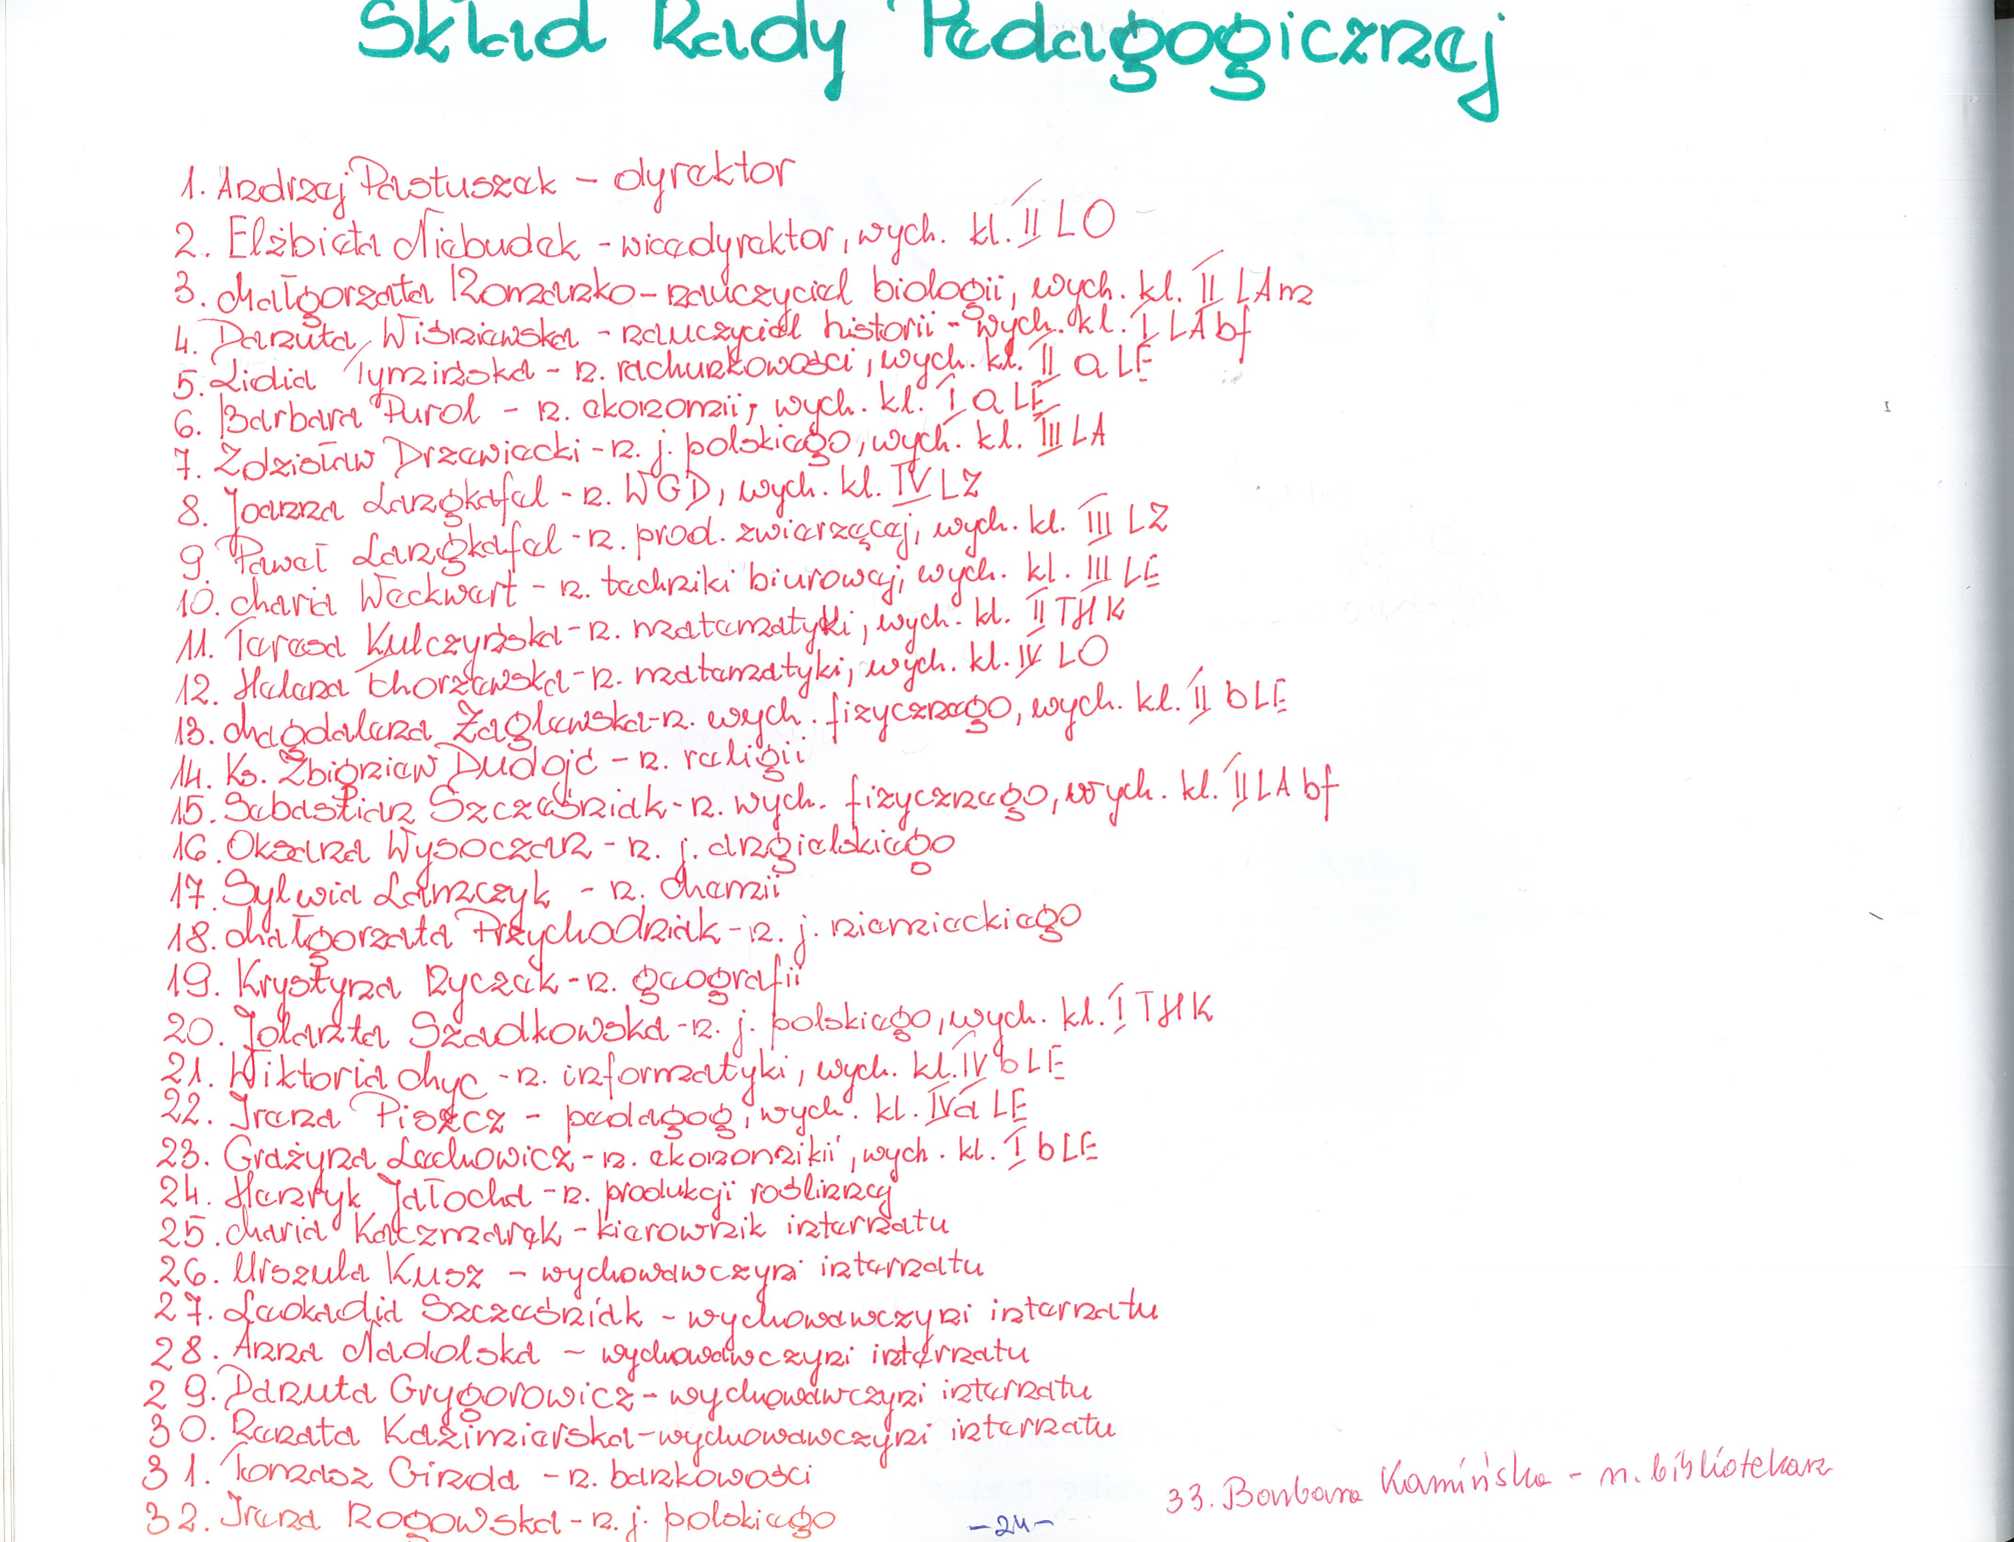 Skład Rady Pedagogicznej
1. Andrzej Pastuszak - dyrektor
2. Elżbieta Niebudek - wicedyrektor, wych. kl. II LO
3. Małgorzata Romanko - nauczyciel biologii, wych. kl. II LAm
4. Danuta Wiśniewska - nauczyciel historii - wych. kl. I LA bf
5. Lidia Tymińska - n. rachunkowości, wych. kl. II a LE
6. Barbara Purol - n. ekonomii, wych. kl. I a LE
7. Zdzisław Drzewiecki - n. j. polskiego, wych. kl. III LA
8. Joanna Langkafel - n. WGD, wych. kl. IV LZ
9. Paweł Langkafel - n. prod. zwierzęcej, wych. kl. III LZ
10. Maria Weckwert - n. techniki biurowej, wych. kl. III LE
11. Teresa Kulczyńska - n. matematyki, wych. kl. II THK
12. Helena Chorzewska - n. matematyki, wych. kl. IV LO
13. Magdalena Żaglewska - n. wych. fizycznego, wych. kl. II b LE
14. Ks. Zbigniew Dudojć - n. religii
15. Sebastian Szcześniak - n. wych. fizycznego, wych. kl. II LA bf
16. Oksana Wysoczan - n. j. angielskiego
17. Sylwia Lamczyk - n. chemii
18. Małgorzata Przychodniak - n. j. niemieckiego
19. Krystyna Ryczek - n. geografii
20. Jolanta Szadkowska - n. j. polskiego, wych. kl. I THK
21. Wiktoria Myc - n. informatyki, wych. kl. IV b LE
22. Irena Piszcz - pedagog, wych. kl. IV a LE
23. Grażyna Lachowicz - n. ekonomiki, wych. kl. I b LE
24. Henryk Jałocha - n. produkcji roślinnej
25. Maria Kaczmarek - kierownik internatu
26. Urszula Kusz - wychowawczyni internatu
27. Leokadia Szcześniak - wychowawczyni internatu
28. Anna Nadolska - wychowawczyni internatu
29. Danuta Grygorowicz - wychowawczyni internatu
30. Renata Kazimierska - wychowawczyni internatu
31. Tomasz Ginda - n. bankowości
32. Irena Rogowska - n. j. polskiego
33. Barbara Kamińska - n. bibliotekarz
- 24 -